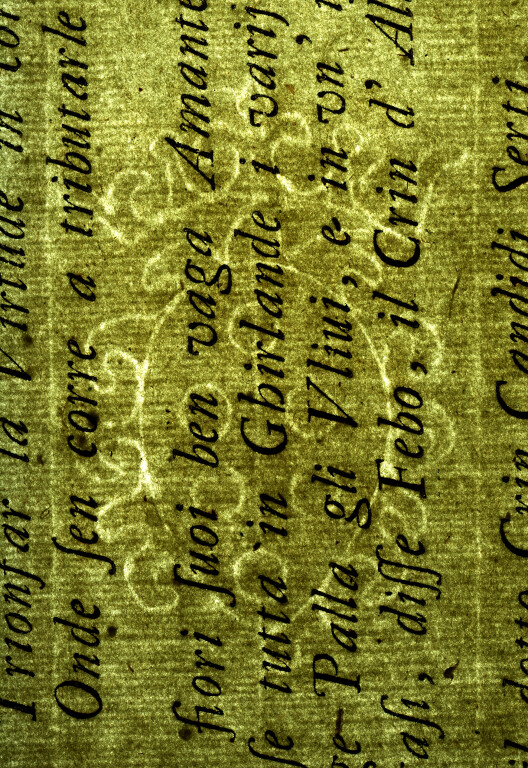 Trionfar la Virtude in con
Onde ſen corre a tributarle
fiori ſuoi ben vaga Amante
ſe tutta in Ghirlande i varij
re- Palla gli Vliui, e in vn,
aſi, diſſe Febo, il Crin d' Al
Crin Candidi Serti